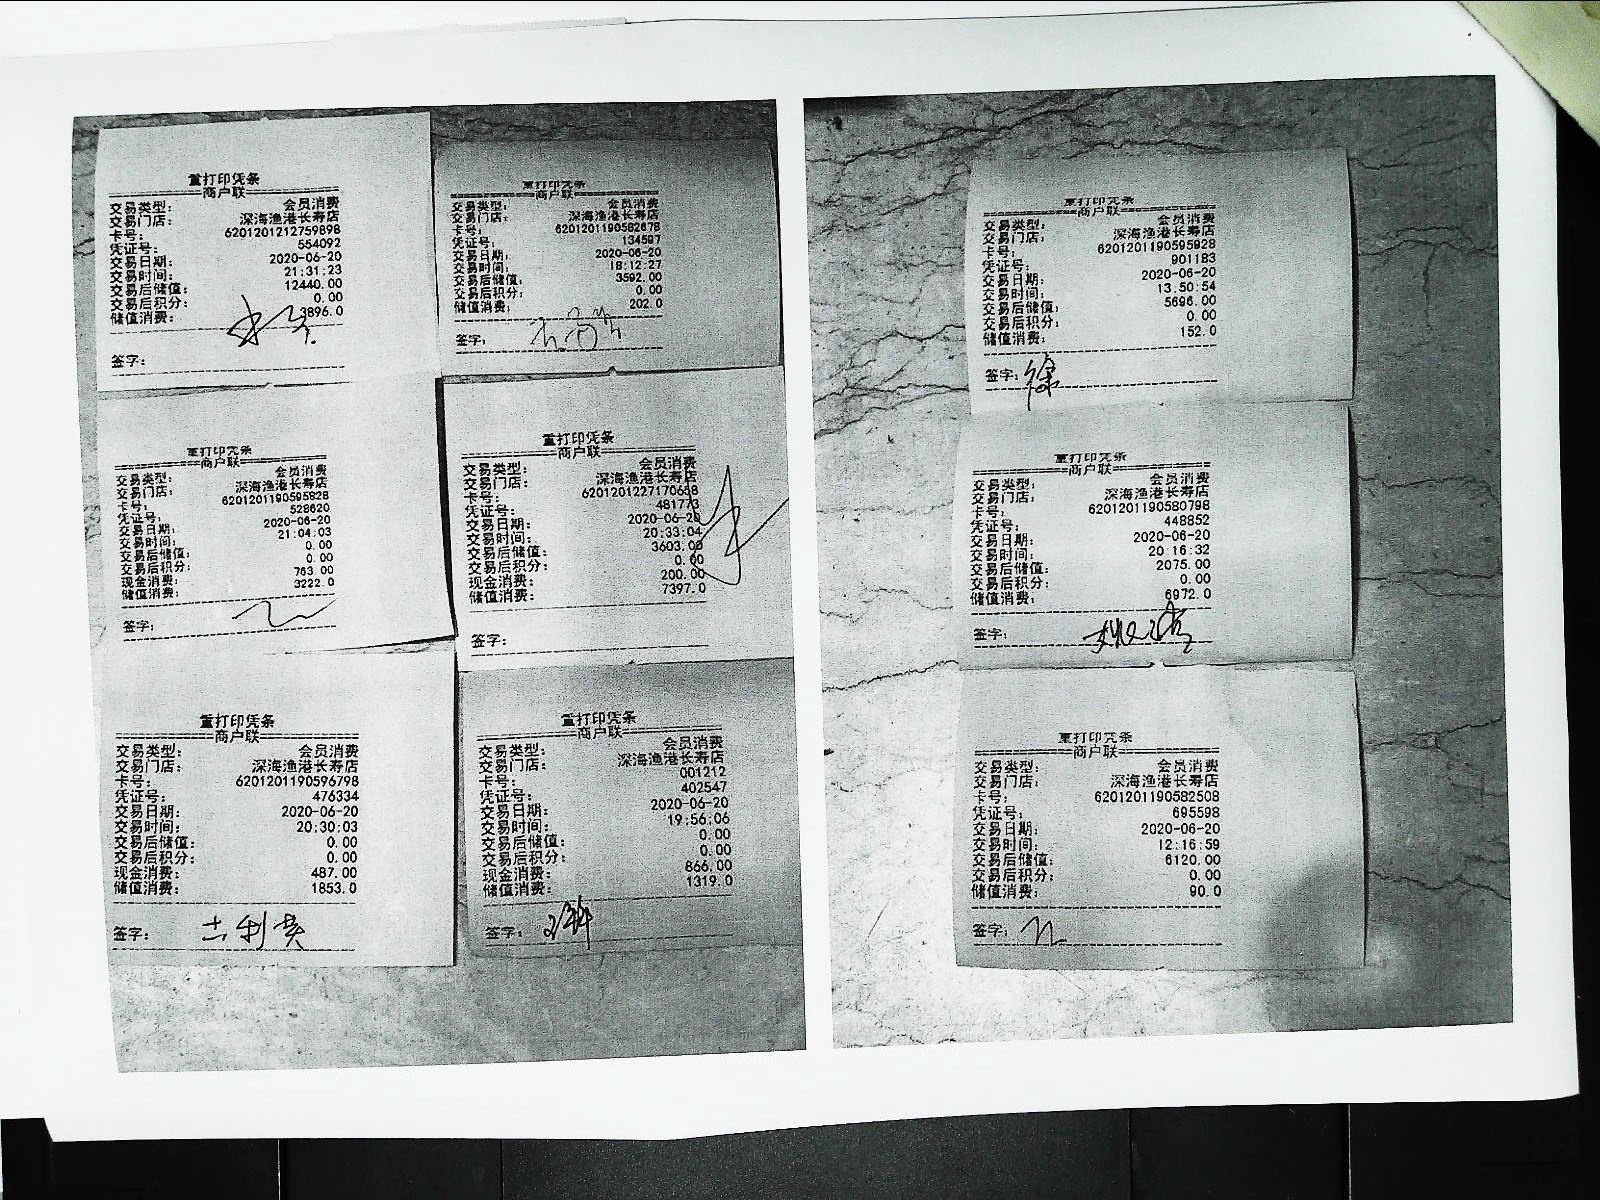 重打印凭条
商户联
交易类型: 会员消费
交易门店: 深海渔港长寿店
卡号: 6201201212759898
凭证号: 554092
交易日期: 2020-06-20
交易时间: 21:31:23
交易后储值: 12440.00
交易后积分: 0.00
储值消费: 3896.0
签字:
重打印凭条
商户联
交易类型: 会员消费
交易门店: 深海渔港长寿店
卡号: 6201201190582678
凭证号: 134597
交易日期: 2020-06-20
交易时间: 18:12:27
交易后储值: 3592.00
交易后积分: 0.00
储值消费: 202.0
签字:
重打印凭条
商户联
交易类型: 会员消费
交易门店: 深海渔港长寿店
卡号: 6201201190595828
凭证号: 528620
交易日期: 2020-06-20
交易时间: 21:04:03
交易后储值: 0.00
交易后积分: 0.00
现金消费: 763.00
储值消费: 3222.0
签字:
重打印凭条
商户联
交易类型: 会员消费
交易门店: 深海渔港长寿店
卡号: 6201201227170658
凭证号: 481773
交易日期: 2020-06-20
交易时间: 20:33:04
交易后储值: 3603.00
交易后积分: 0.00
现金消费: 200.00
储值消费: 7397.0
签字:
重打印凭条
商户联
交易类型: 会员消费
交易门店: 深海渔港长寿店
卡号: 6201201190596798
凭证号: 476334
交易日期: 2020-06-20
交易时间: 20:30:03
交易后储值: 0.00
交易后积分: 0.00
现金消费: 487.00
储值消费: 1853.0
签字:
重打印凭条
商户联
交易类型: 会员消费
交易门店: 深海渔港长寿店
卡号: 001212
凭证号: 402547
交易日期: 2020-06-20
交易时间: 19:56:06
交易后储值: 0.00
交易后积分: 0.00
现金消费: 866.00
储值消费: 1319.0
签字:
重打印凭条
商户联
交易类型: 会员消费
交易门店: 深海渔港长寿店
卡号: 6201201190595928
凭证号: 901183
交易日期: 2020-06-20
交易时间: 13:50:54
交易后储值: 5696.00
交易后积分: 0.00
储值消费: 152.0
签字: 徐
重打印凭条
商户联
交易类型: 会员消费
交易门店: 深海渔港长寿店
卡号: 6201201190580798
凭证号: 448852
交易日期: 2020-06-20
交易时间: 20:16:32
交易后储值: 2075.00
交易后积分: 0.00
储值消费: 6972.0
签字:
重打印凭条
商户联
交易类型: 会员消费
交易门店: 深海渔港长寿店
卡号: 6201201190582508
凭证号: 695598
交易日期: 2020-06-20
交易时间: 12:16:59
交易后储值: 6120.00
交易后积分: 0.00
储值消费: 90.0
签字: